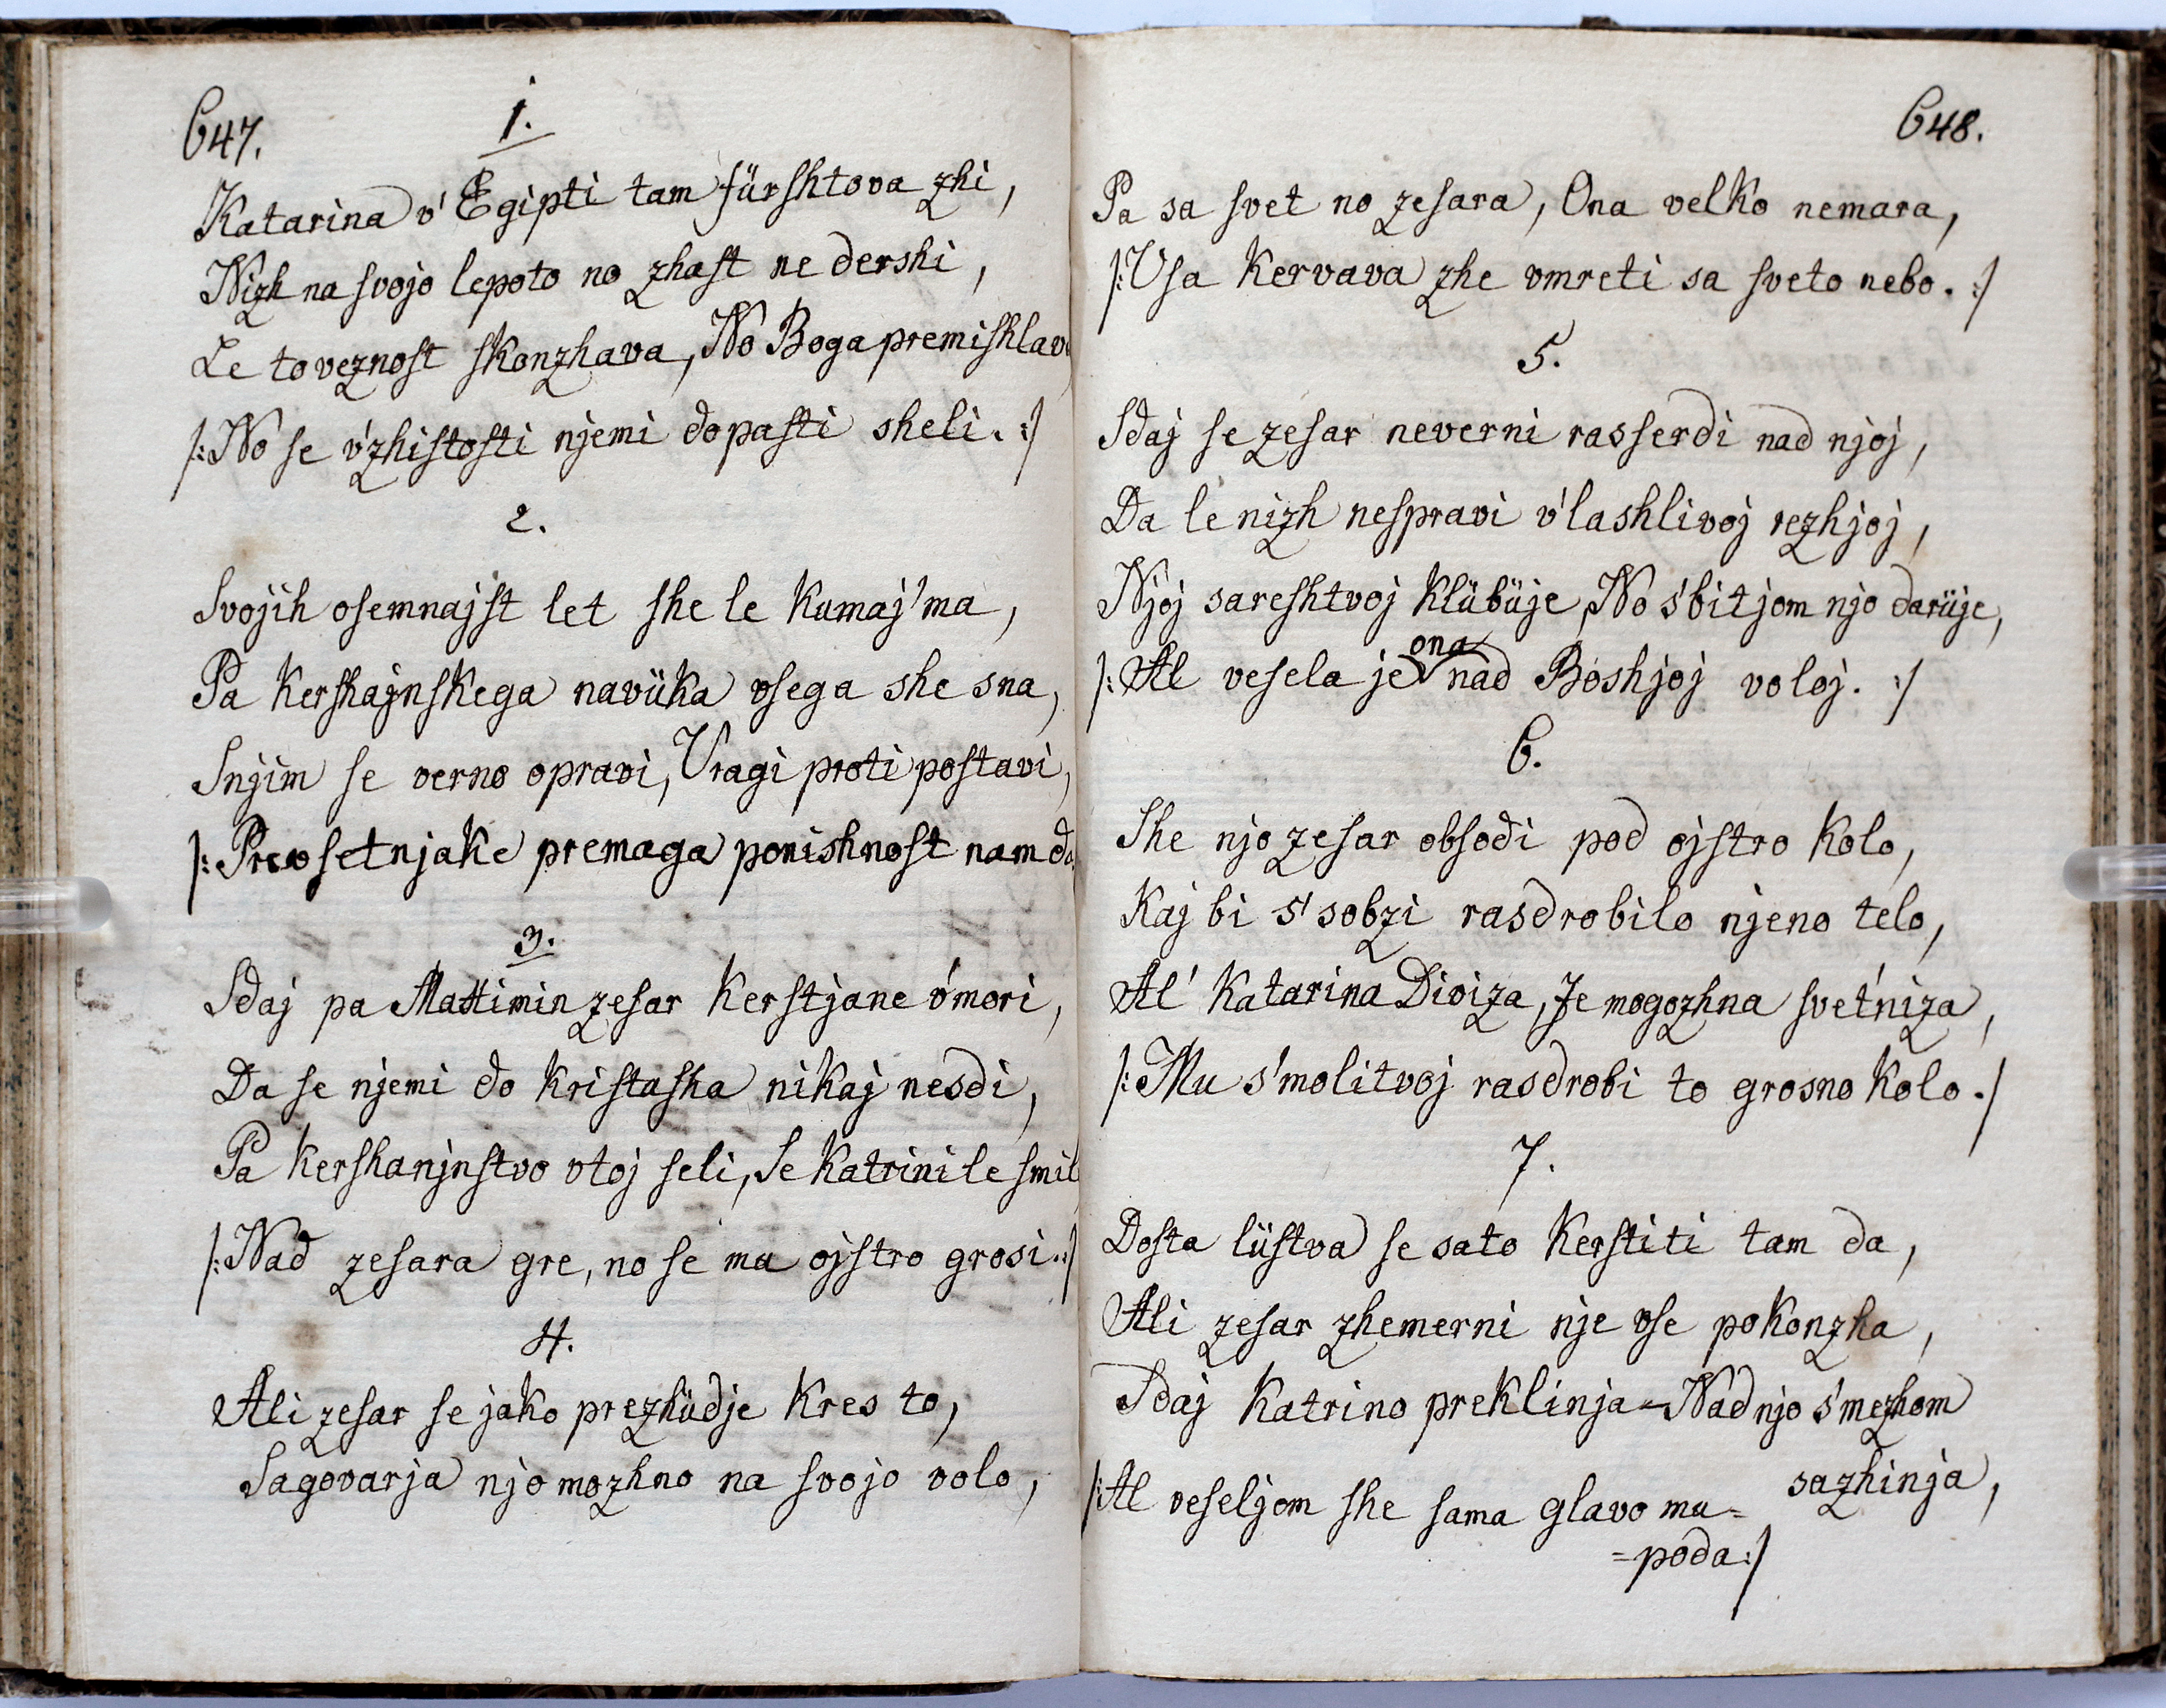 647.
1.
Katarina v' Egipti tam fürshtova zhi,
Nizh na svojo lepoto no zhaſt ne dershi,
Le to veznoſt ſkonzhava, No Boga premiſhlav
/: No ſe v'zhiſtoſti njemi dopaſti sheli. :/
2.
Svojih oſemnajſt let she le kumaj'ma,
Pa kerſhajnſkega navüka vſega she sna,
Snjim ſe verno opravi, Vragi proti poſtavi,
/: Prevſetnjake premaga ponishnoſt nam da
3.
Sdaj pa Maxtimin zeſar kerſtjane v'mori,
Da ſe njemi do kriſtuſha nikaj nesdi,
Pa kerſhanjnſtvo vtoj ſeli, Se Katrini le ſmil
/: Nad zeſara gre, no ſe mu ojſtro grosi. :/
4.
Ali zeſar ſe jako prezhüdje kres to,
Sagovarja njo mozhno na ſvojo volo,
648.
Pa sa ſvet no zeſara, Ona velko nemara,
/: Vſa kervava zhe vmreti sa ſveto nebo. :/
5.
Sdaj ſe zeſar neverni rasſerdi nad njoj,
Da le nizh neſpravi v'lashlivoj rezhjoj,
Njoj sareshtvoj klübüje, No s'bitjom njo darüje,
/: Al veſela je ona nad Boshjoj voloj. :/
6.
She njo zeſar obſodi pod ojſtro kolo,
Kaj bi s' sobzi rasdrobilo njeno telo,
Al' Katarina Diviza, Je mogozhna ſvet'niza,
/: Mu s'molitvoj rasdrobi to grosno kolo. /
7.
Doſta lüſtva ſe sato kerſtiti tam da,
Ali zeſar zhemerni nje vſe pokonzha,
Sdaj Katrino preklinja = Nad njo s'mezhom
sazhinja,
/: Al veſeljom she ſama glavo mu=
=poda :/